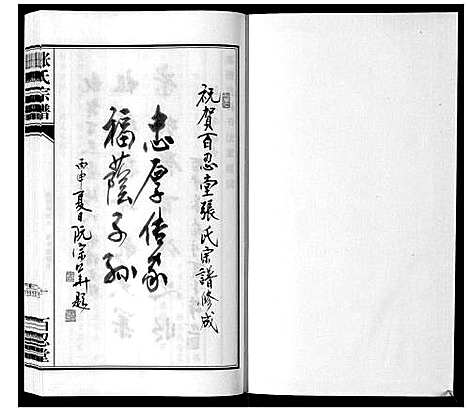 祝賀百忍堂張氏宗譜修成
忠厚传家
福蔭子孙
丙申夏日阮宗华題
张氏宗譜
百忍堂